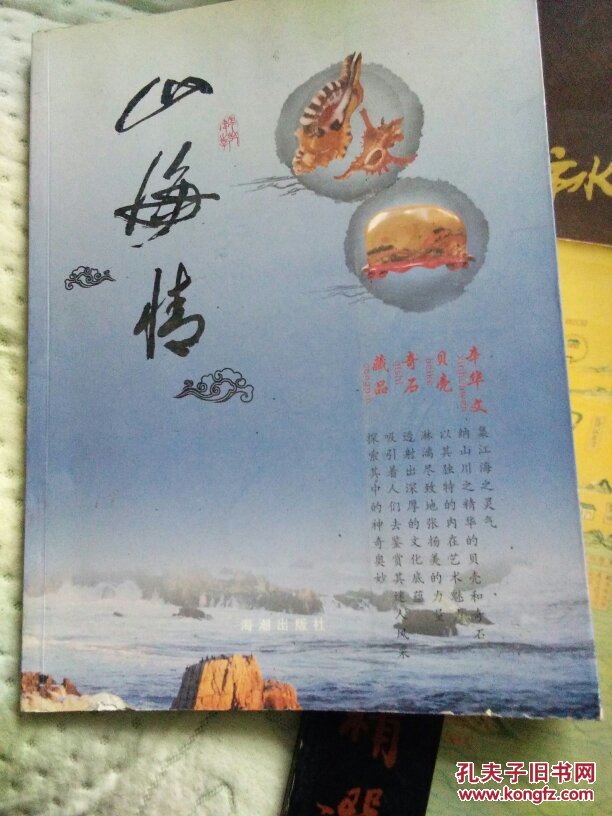 山海情
辛华文
贝壳
奇石
藏品
集江海之灵气
纳山川之精华的贝壳和奇石
以其独特的内在艺术魅力
淋漓尽致地张扬美的力量
透射出深厚的文化底蕴
吸引着人们去鉴赏其迷人风采
探索其中的神奇奥妙
海潮出版社
水
精选
孔夫子旧书网
www.kongfz.com